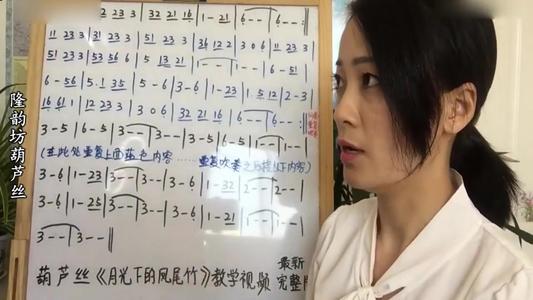 12 23 3 | 32 21 16 | 1 - 21 | 6 - - | 6 - - :||
11 23 3 | 31 23 3 | 51 23 3 | 36 12 2 | 3 0 6 | 11 23 3
51 23 3 | 53 56 6 | 5 13 21 | 1 - - | 1 - - | 6 - 51 |
6 - 56 | 5. 1 35 | 5 - 6 | 3 - 6 | 1 - 23 | 1. 5 12 | 2 - 3 |
16 61 1 | 12 23 3 | 3 0 6 | 32 21 16 | 6 - - | 6 - - :||
3 - 5 | 6 - 5 | 3 - - | 3 - - | 3 - 5 | 6 - 5 | 1 - - | 1 - -
(在此处重复上面蓝色内容 …… 重复吹奏之后接以下内容)
3 - 6 | 1 - 23 | 3 - - | 3 - - | 3 - 6 | 1 - 32 | 2 - - | 2 - -
3 - 6 | 1 - 25 | 3 - - | 3 - - | 3 - 6 | 1 - 21 | 1 - - | 1 - -
3 - - | 3 - - ||
葫芦丝《月光下的凤尾竹》教学视频
最新
完整
隆韵坊葫芦丝